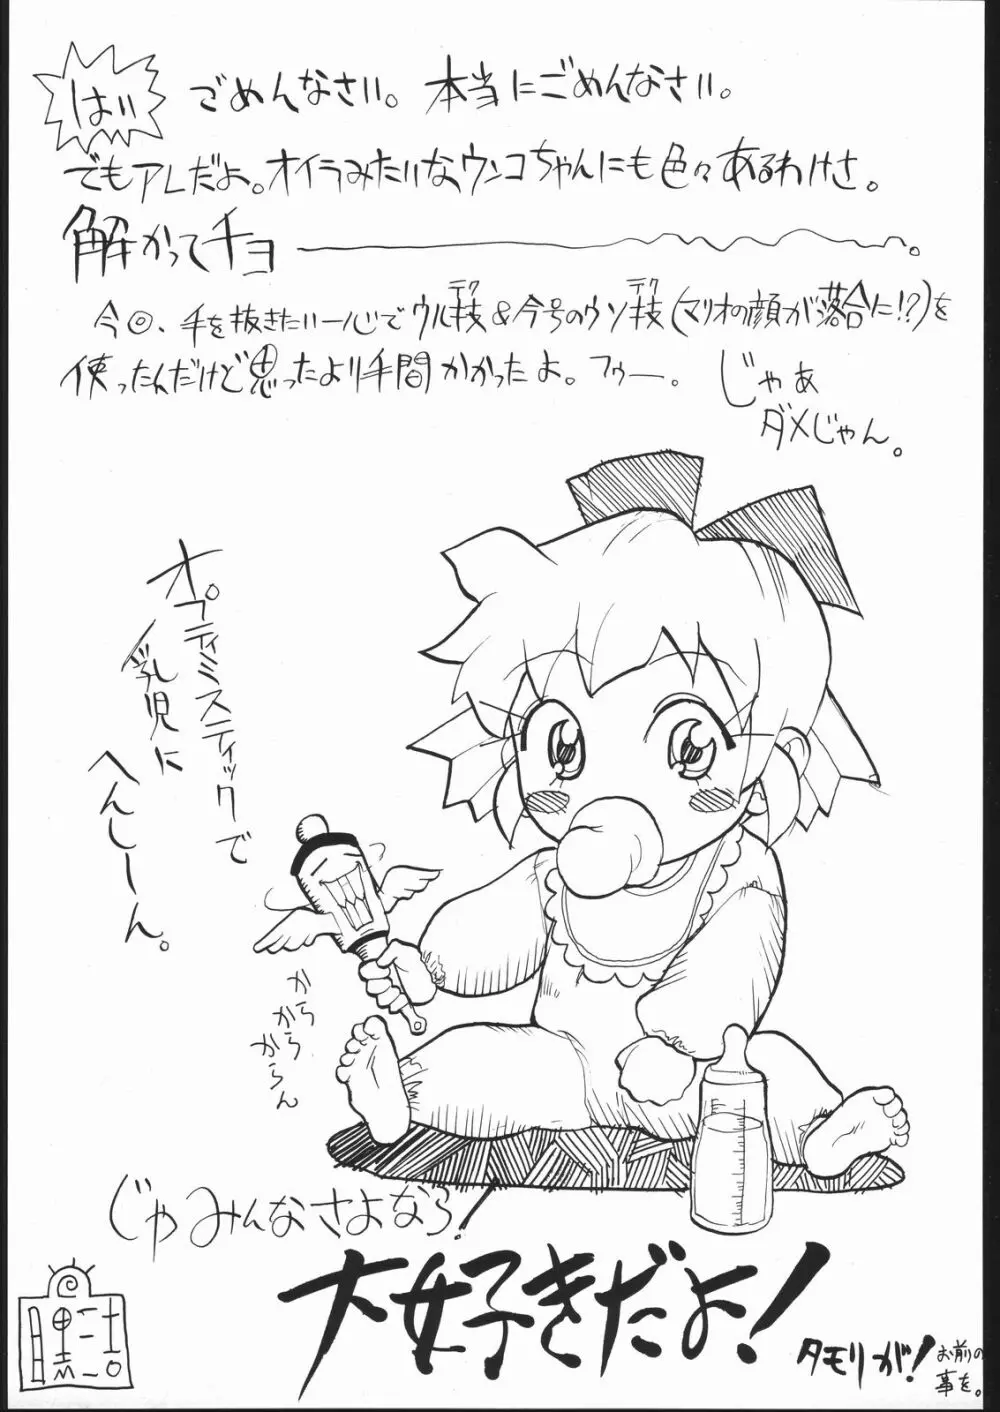 はい ごめんなさい。本当にごめんなさい。
でもアレだよ。オイラみたいなウンコちゃんにも色々あるわけさ。
解かってチョ――――。
今回、手を抜きたい一心でウル技テク&今号のウソ技テク(マリオの顔が落合に!?)を
使ったんだけど思ったより手間かかったよ。フゥー。
じゃあ
ダメじゃん。
オプティミスティックで
乳児に
へんしーん。
から
からから
からん
じゃみんなさよなら!
大好きだよ!
タモリが!
お前の
事を。